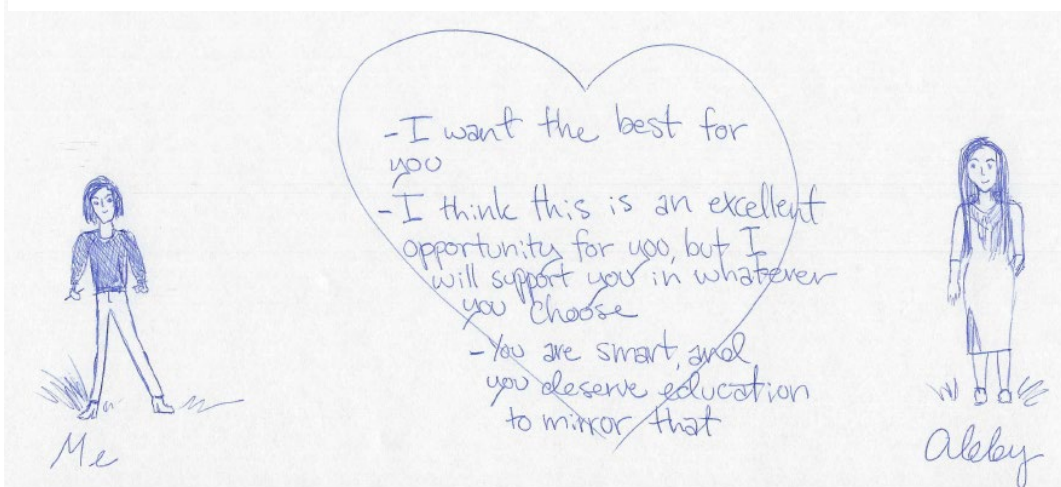 - I want the best for
you
- I think this is an excellent
opportunity for you, but I
will support you in whatever
you choose
- You are smart, and
you deserve education
to mirror that
Me
Abby